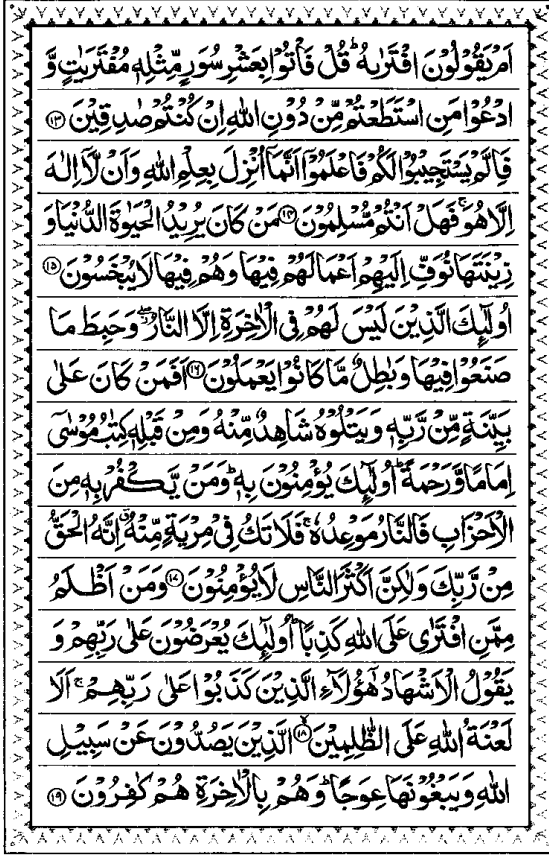 اَمۡ يَقُوۡلُوۡنَ افۡتَرٰىهُ‌ ؕ قُلۡ فَاۡتُوۡا بِعَشۡرِ سُوَرٍ مِّثۡلِهٖ مُفۡتَرَيٰتٍ وَّ
ادۡعُوۡا مَنِ اسۡتَطَعۡتُمۡ مِّنۡ دُوۡنِ اللّٰهِ اِنۡ كُنۡتُمۡ صٰدِقِيۡنَ ﴿۱۳﴾
فَاِلَّمۡ يَسۡتَجِيۡبُوۡا لَكُمۡ فَاعۡلَمُوۡۤا اَنَّمَاۤ اُنۡزِلَ بِعِلۡمِ اللّٰهِ وَاَنۡ لَّاۤ اِلٰهَ
اِلَّا هُوَ‌ ۚ فَهَلۡ اَنۡتُمۡ مُّسۡلِمُوۡنَ ﴿۱۴﴾ مَنۡ كَانَ يُرِيۡدُ الۡحَيٰوةَ الدُّنۡيَا وَ
زِيۡنَتَهَا نُوَفِّ اِلَيۡهِمۡ اَعۡمَالَهُمۡ فِيۡهَا وَهُمۡ فِيۡهَا لَا يُبۡخَسُوۡنَ ﴿۱۵﴾
اُولٰٓٮِٕكَ الَّذِيۡنَ لَيۡسَ لَهُمۡ فِى الۡاٰخِرَةِ اِلَّا النَّارُ ‌ۖ وَحَبِطَ مَا
صَنَعُوۡا فِيۡهَا وَبٰطِلٌ مَّا كَانُوۡا يَعۡمَلُوۡنَ ﴿۱۶﴾ اَفَمَنۡ كَانَ عَلٰى
بَيِّنَةٍ مِّنۡ رَّبِّهٖ وَيَتۡلُوۡهُ شَاهِدٌ مِّنۡهُ وَمِنۡ قَبۡلِهٖ كِتٰبُ مُوۡسٰٓى
اِمَامًا وَّرَحۡمَةً‌ ؕ اُولٰٓٮِٕكَ يُؤۡمِنُوۡنَ بِهٖ‌ ؕ وَمَنۡ يَّكۡفُرۡ بِهٖ مِنَ
الۡاَحۡزَابِ فَالنَّارُ مَوۡعِدُهٗ‌ ۚ فَلَا تَكُ فِىۡ مِرۡيَةٍ مِّنۡهُ‌ ۗ اِنَّهُ الۡحَقُّ
مِنۡ رَّبِّكَ وَلٰـكِنَّ اَكۡثَرَ النَّاسِ لَا يُؤۡمِنُوۡنَ ﴿۱۷﴾ وَمَنۡ اَظۡلَمُ
مِمَّنِ افۡتَرٰى عَلَى اللّٰهِ كَذِبًا‌ ؕ اُولٰٓٮِٕكَ يُعۡرَضُوۡنَ عَلٰى رَبِّهِمۡ وَ
يَقُوۡلُ الۡاَشۡهَادُ هٰٓؤُلَاۤءِ الَّذِيۡنَ كَذَبُوۡا عَلٰى رَبِّهِمۡ‌ ۚ اَلَا
لَعۡنَةُ اللّٰهِ عَلَى الظّٰلِمِيۡنَ ﴿۱۸﴾ الَّذِيۡنَ يَصُدُّوۡنَ عَنۡ سَبِيۡلِ
اللّٰهِ وَيَبۡغُوۡنَهَا عِوَجًا ؕ وَهُمۡ بِالۡاٰخِرَةِ هُمۡ كٰفِرُوۡنَ ﴿۱۹﴾